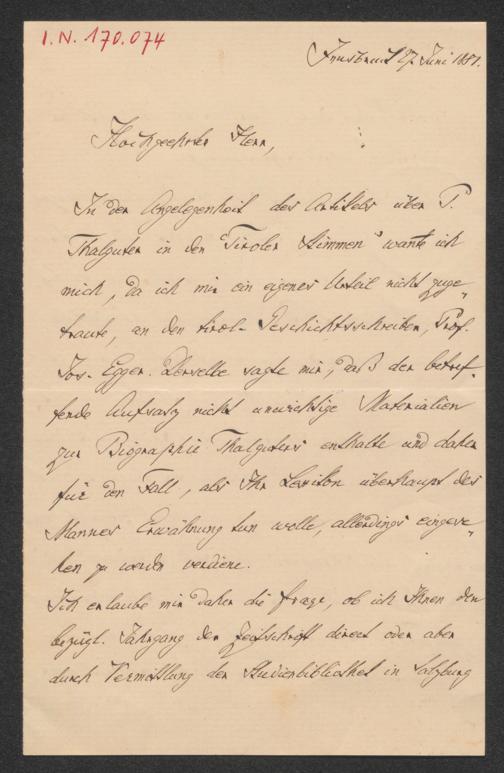 I.N. 170.074
Innsbruck 27. Juni 1881.
Hochgeehrter Herr,
In der Angelegenheit des Artikels über P.
Thalguter in den "Tiroler Stimmen" wante ich
mich, da ich mir ein eigenes Urteil nicht zuge-
traute, an den tirol. Geschichtsschreiber, Prof.
Jos. Egger. Derselbe sagte mir, daß der betref-
fende Aufsatz nicht unwichtige Materialien
zur Biographie Thalguters enthalte und daher
für den Fall, als Ihr Lexikon überhaupt des
Mannes Erwähnung tun wolle, allerdings eingese-
hen zu werden verdiene.
Ich erlaube mir daher die Frage, ob ich Ihnen den
bezügl. Jahrgang der Zeitschrift direct oder aber
durch Vermittlung der Studienbibliothek in Salzburg